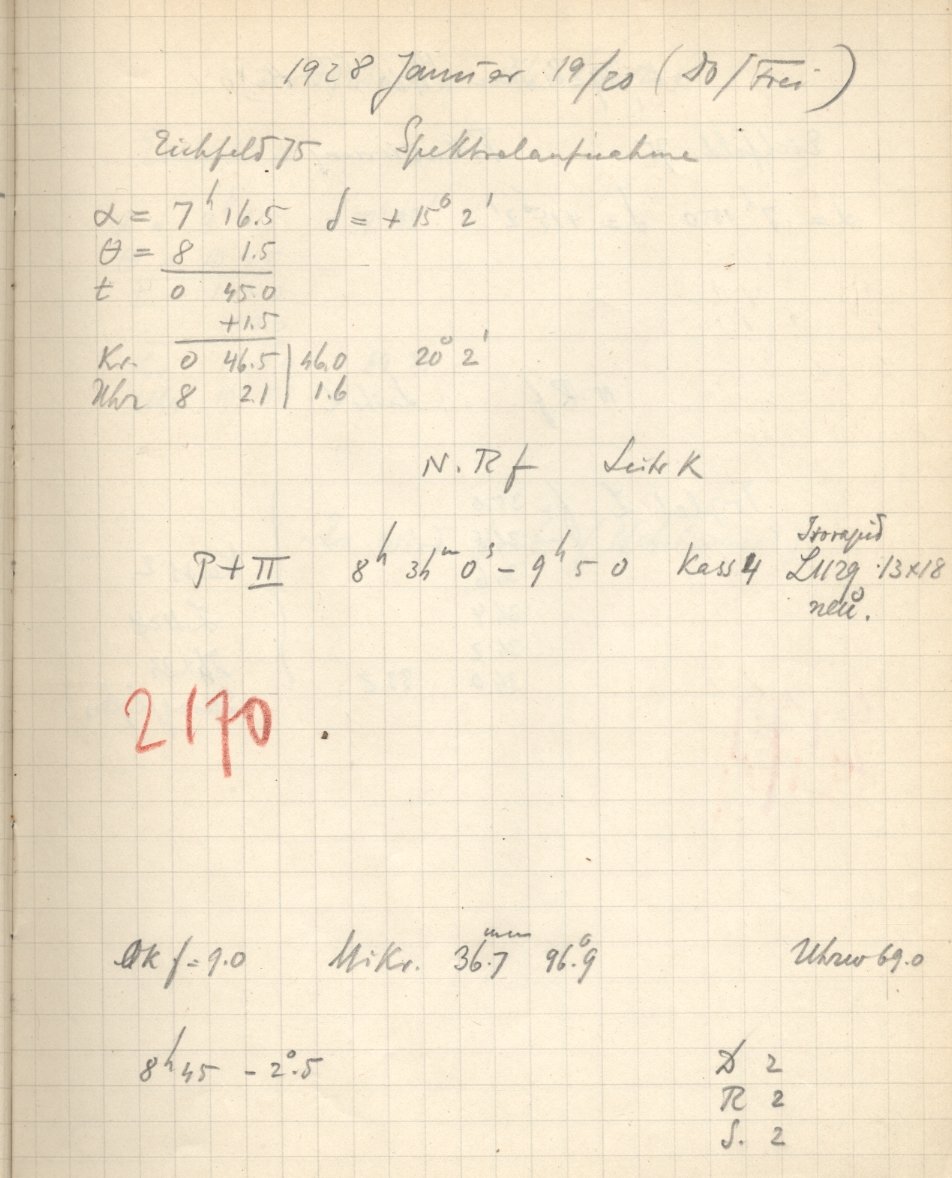 1928 Januar 19/20 (Do/Frei)
Eichfeld 75 Spektralaufnahme
α = 7ʰ 16.5 δ = +15° 2'
θ = 8 1.5
t 0 45.0
+1.5
Kr. 0 46.5 | 46.0 20° 2'
Uhr 8 2.1 | 1.6
N. R f Leitr K
Isorapid
P + II 8ʰ 35ᵐ 0ˢ – 9ʰ 5 0 Kass 4 13×18
neu.
2170
Ok f = 9.0 Mikr. 36.7ᵐᵐ 96.9° Uhrw 69.0
8ʰ 45 – 2°.5
D 2
R 2
S. 2